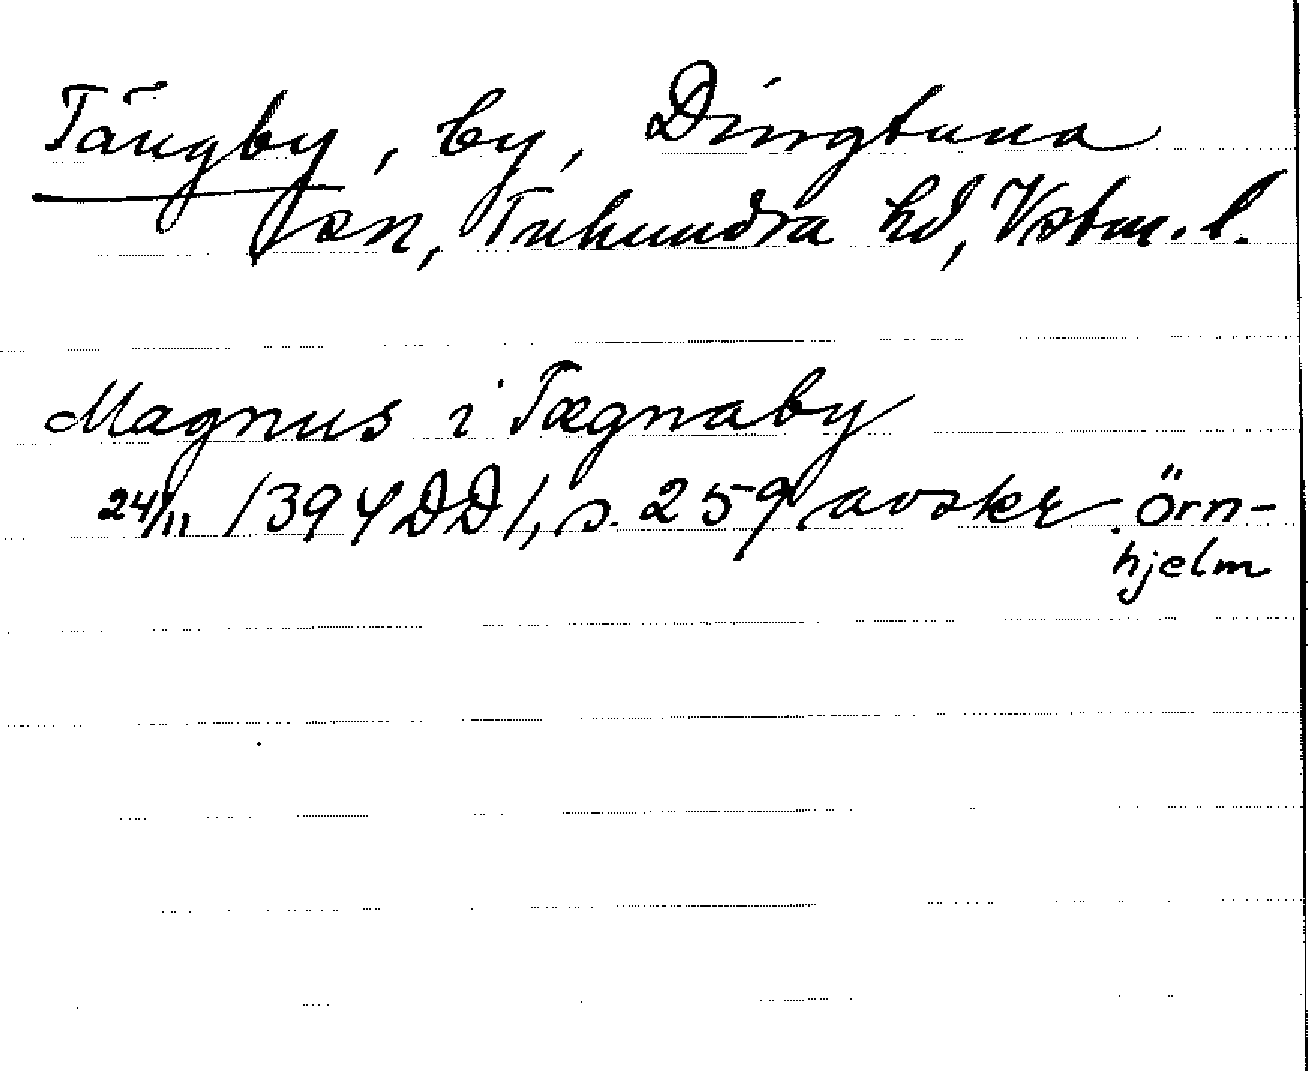 Tängby, by, Dingtuna
sn, Tuhundra hd, Vstm. l.
Magnus i Tægnaby
24/11 1394 DD 1, s. 259 avskr. Örn-
hjelm